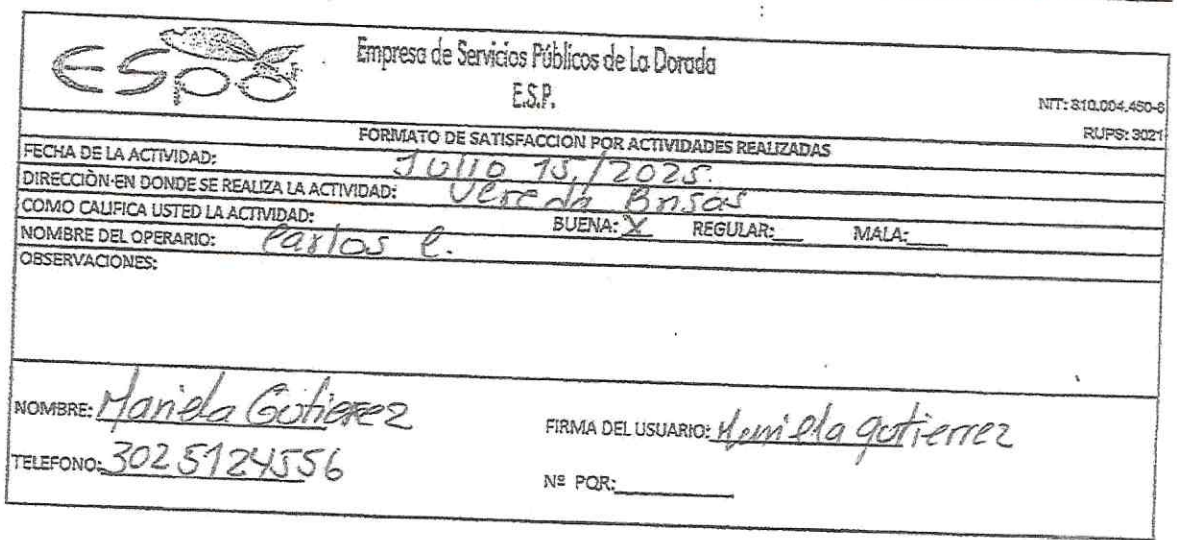 ESPD
Empresa de Servicios Públicos de La Dorada
E.S.P.
NIT: 810.004.450-6
RUPS: 3021
FORMATO DE SATISFACCION POR ACTIVIDADES REALIZADAS
FECHA DE LA ACTIVIDAD: Julio 15/2025.
DIRECCIÒN EN DONDE SE REALIZA LA ACTIVIDAD: Vereda Brisas
COMO CALIFICA USTED LA ACTIVIDAD: BUENA: X REGULAR:___ MALA:____
NOMBRE DEL OPERARIO: Carlos C.
OBSERVACIONES:
NOMBRE: Mariela Gutierrez FIRMA DEL USUARIO: Mariela gutierrez
TELEFONO: 3025124556 Nº PQR:________